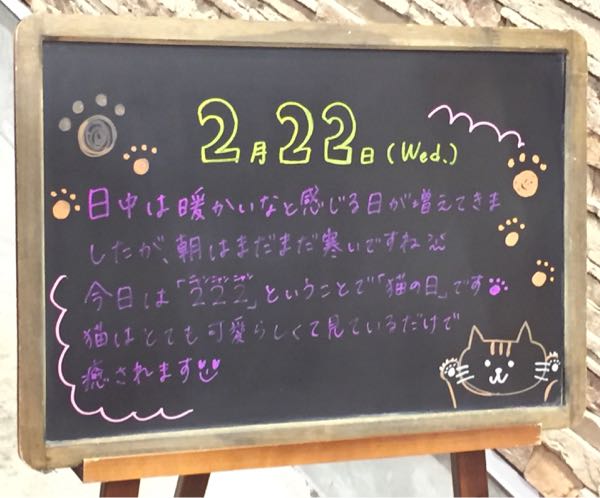 2月22日(Wed.)
日中は暖かいなと感じる日が増えてきま
したが、朝はまだまだ寒いですね
ニャンニャンニャン
今日は「222」ということで「猫の日」です
猫はとても可愛らしくて見ているだけで
癒されます